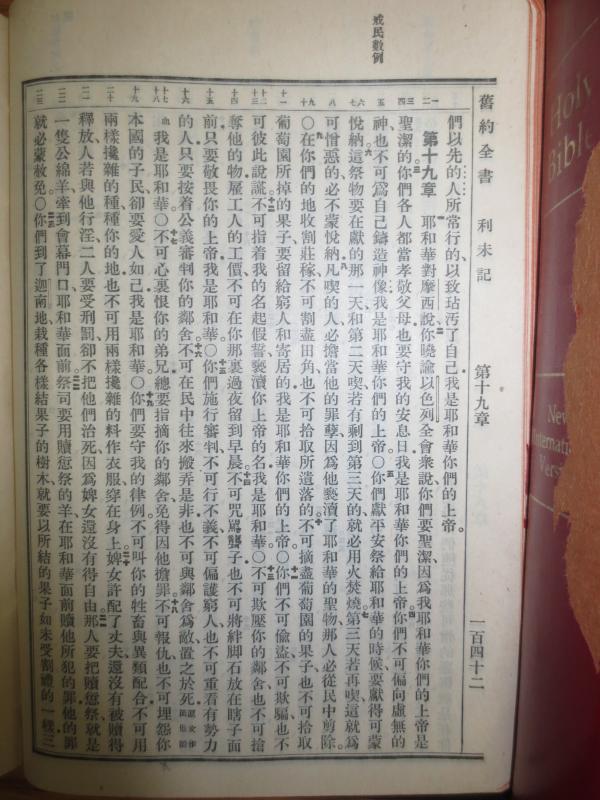 戒民數例
舊約全書 利未記 第十九章 一百四十二
們以先的人所常行的以致玷汚了自己我是耶和華你們的上帝。
第十九章 耶和華對摩西說你曉諭以色列全會衆說你們要聖潔因爲我耶和華你們的上帝是
聖潔的你們各人都當孝敬父母也要守我的安息日我是耶和華你們的上帝你們不可偏向虛無的
神也不可爲自己鑄造神像我是耶和華你們的上帝○你們獻平安祭給耶和華的時候要獻得可蒙
悅納這祭物要在獻的那一天和第二天喫若有剩到第三天的就必用火焚燒第三天若再喫這就爲
可憎惡的必不蒙悅納凡喫的人必擔當他的罪孽因爲他褻瀆了耶和華的聖物那人必從民中剪除。
○在你們的地收割莊稼不可割盡田角也不可拾取所遺落的不可摘盡葡萄園的果子也不可拾取
葡萄園所掉的果子要留給窮人和寄居的我是耶和華你們的上帝○你們不可偷盜不可欺騙也不
可彼此說謊不可指着我的名起假誓褻瀆你上帝的名我是耶和華○不可欺壓你的鄰舍也不可搶
奪他的物雇工人的工價不可在你那裏過夜留到早晨不可咒罵聾子也不可將絆脚石放在瞎子面
前只要敬畏你的上帝我是耶和華○你們施行審判不可行不義不可偏護窮人也不可重看有勢力
的人只要按着公義審判你的鄰舍不可在民中往來搬弄是非也不可與鄰舍爲敵置之於死原文作流他的
血我是耶和華○不可心裏恨你的弟兄總要指摘你的鄰舍免得因他擔罪不可報仇也不可埋怨你
本國的子民卻要愛人如己我是耶和華○你們要守我的律例不可叫你的牲畜與異類配合不可用
兩樣攙雜的種種你的地也不可用兩樣攙雜的料作衣服穿在身上婢女許配了丈夫還沒有被贖得
釋放人若與他行淫二人要受刑罰卻不把他們治死因爲婢女還沒有得自由那人要把贖愆祭就是
一隻公綿羊牽到會幕門口耶和華面前祭司要用贖愆祭的羊在耶和華面前贖他所犯的罪他的罪
就必蒙赦免○你們到了迦南地栽種各樣結果子的樹木就要以所結的果子如未受割禮的一樣三
Holy
Bible
New
International
Version